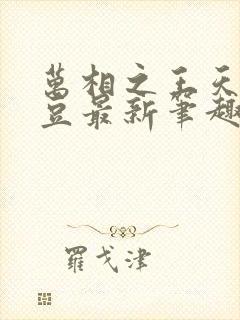 萬相之王天
豆最新筆趣
羅戈津